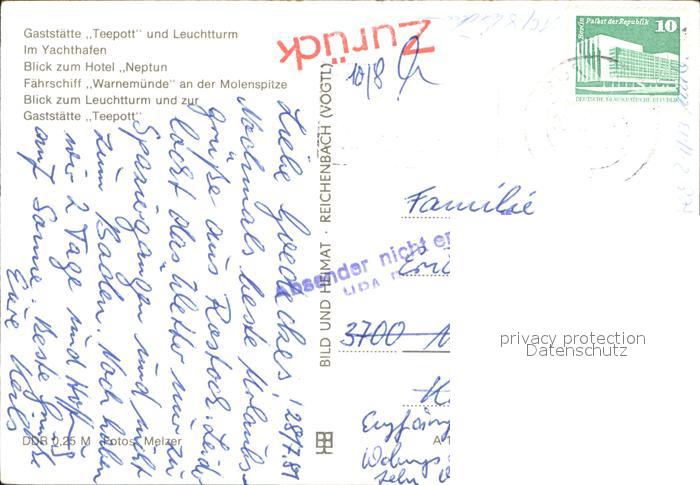 Gaststätte „Teepott" und Leuchtturm
Im Yachthafen
Blick zum Hotel „Neptun
Fährschiff „Warnemünde" an der Molenspitze
Blick zum Leuchtturm und zur
Gaststätte „Teepott"
Zurück
10/8
Berlin Palast der Republik
10
DEUTSCHE DEMOKRATISCHE REPUBLIK
Liebe 28/7.81
Nochmals beste Urlaubs-
grüße aus Rostock. Leider
lockt das Wetter nur zu
Spaziergängen und nicht
zum Baden. Noch haben
wir 2 Tage und hoffen
auf Sonne. Beste Grüße
Eure
BILD UND HEIMAT · REICHENBACH (VOGTL)
Familie
Absender nicht er
3700
Empfäng
DDR 0,25 M Fotos: Melzer
A 1
privacy protection
Datenschutz